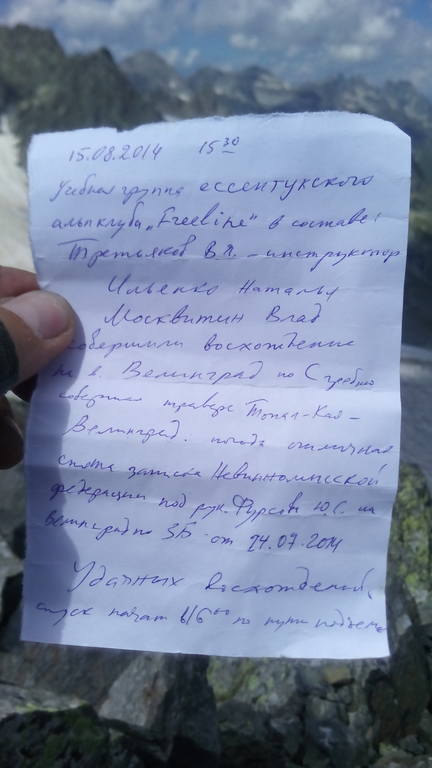 15.08.2014 15 30
Учебная группа ессентукского
альпклуба „Freeline" в составе:
Третьяков В.П. – инструктор
Ильенко Наталья
Москвитин Влад
совершили восхождение
на в. Велинград по С гребню
совершив траверс Топал-Кая –
Велинград. погода отличная
снята записка Невинномысской
федерации под рук. Фурсова Ю.С. на
Велинград по 3Б от 24.07.2014
Удачных восхождений,
спуск начат в 16 00 по пути подъема